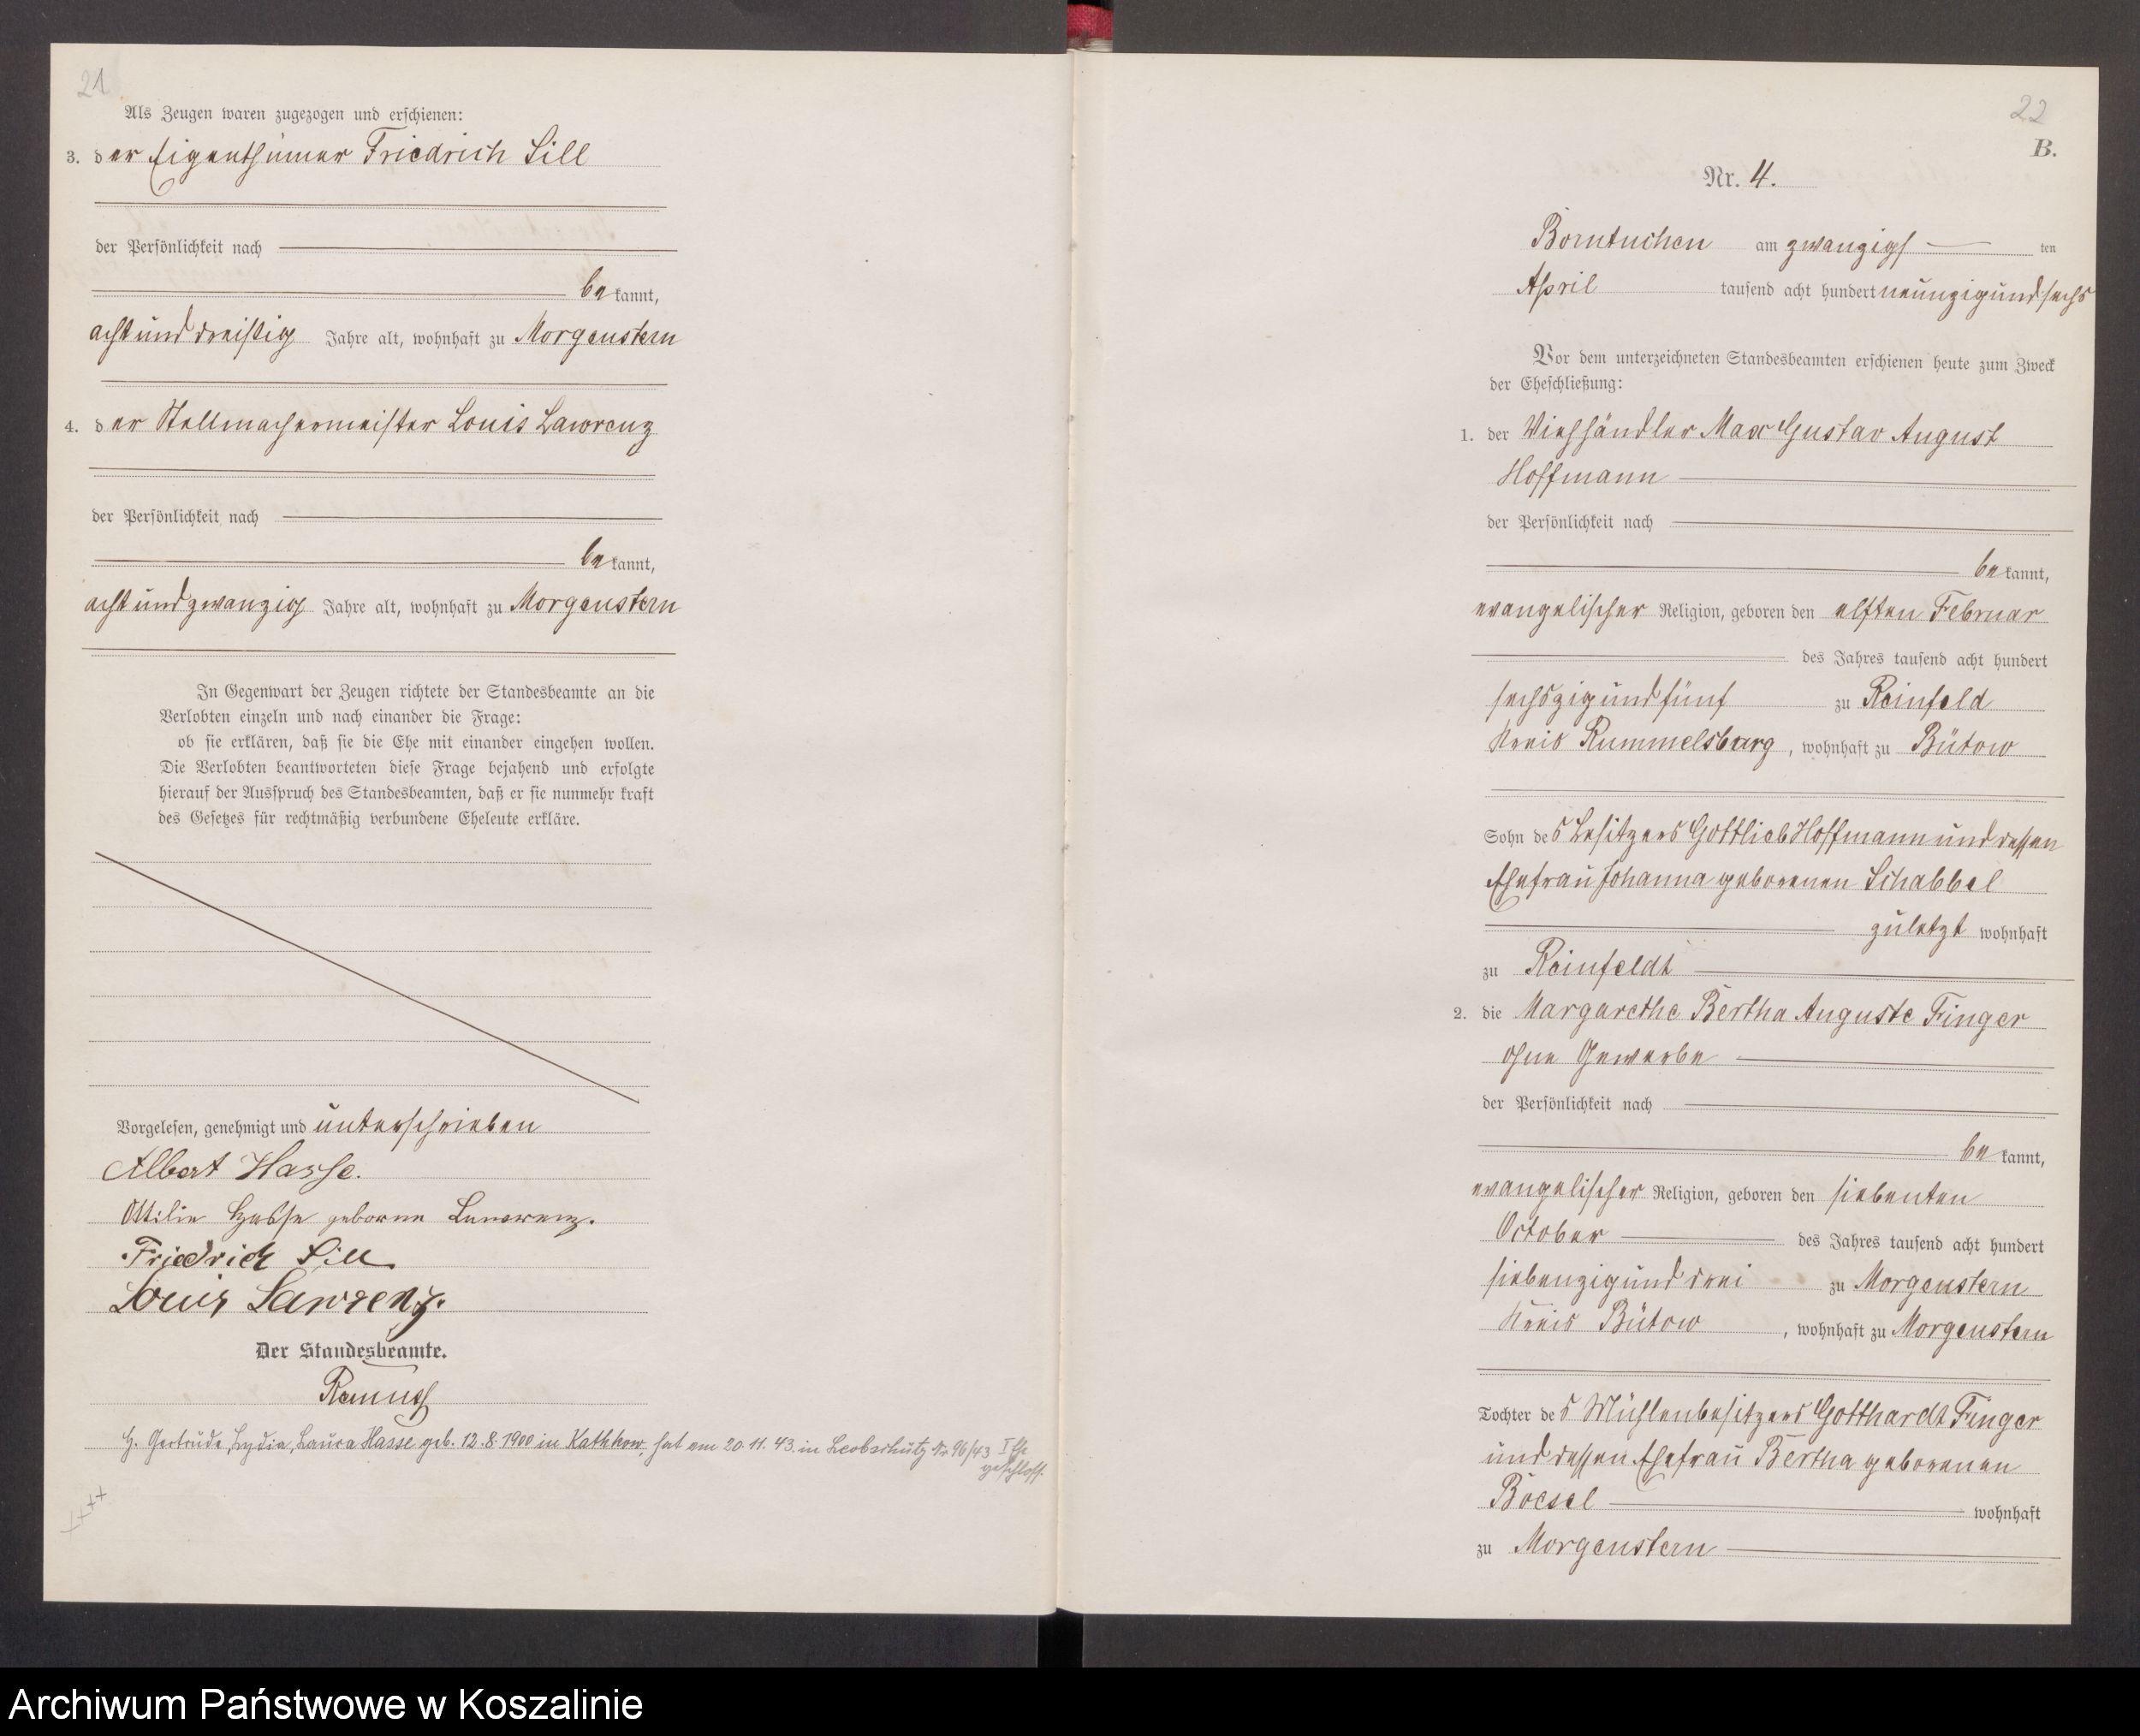 21
Als Zeugen waren zugezogen und erschienen:
3. der Eigenthümer Friedrich Sill
der Persönlichkeit nach
bekannt,
achtunddreißig Jahre alt, wohnhaft zu Morgenstern
4. der Stellmachermeister Louis Lawrenz
der Persönlichkeit nach
bekannt,
achtundzwanzig Jahre alt, wohnhaft zu Morgenstern
In Gegenwart der Zeugen richtete der Standesbeamte an die
Verlobten einzeln und nach einander die Frage:
ob sie erklären, daß sie die Ehe mit einander eingehen wollen.
Die Verlobten beantworteten diese Frage bejahend und erfolgte
hierauf der Ausspruch des Standesbeamten, daß er sie nunmehr kraft
des Gesetzes für rechtmäßig verbundene Eheleute erkläre.
Vorgelesen, genehmigt und unterschrieben
Albert Hasse.
Ottilie Hasse geborne Lawrenz.
Friedrich Sill
Louis Lawrenz.
Der Standesbeamte.
Gertrude, Lydia, Laura Hasse geb. 12.8.1900 in Kathkow, hat am 20.11.43. in Leobschütz Nr 96/43 I Ehe
geschloss.
22
B.
Nr. 4.
Borntuchen am zwanzigsten
April tausend acht hundert neunzigundsechs
Vor dem unterzeichneten Standesbeamten erschienen heute zum Zweck
der Eheschließung:
1. der Viehhändler Max Gustav August
Hoffmann
der Persönlichkeit nach
bekannt,
evangelischer Religion, geboren den elften Februar
des Jahres tausend acht hundert
sechszigundfünf zu Reinfeld
Kreis Rummelsburg, wohnhaft zu Bütow
Sohn des Besitzers Gottlieb Hoffmann und dessen
Ehefrau Johanna geborenen Schabbel
zuletzt wohnhaft
zu Reinfeldt
2. die Margarethe Bertha Auguste Finger
ohne Gewerbe
der Persönlichkeit nach
bekannt,
evangelischer Religion, geboren den siebenten
October des Jahres tausend acht hundert
siebenzigunddrei zu Morgenstern
Kreis Bütow, wohnhaft zu Morgenstern
Tochter des Mühlenbesitzers Gotthardt Finger
und dessen Ehefrau Bertha geborenen
Boesel wohnhaft
zu Morgenstern
Archiwum Państwowe w Koszalinie